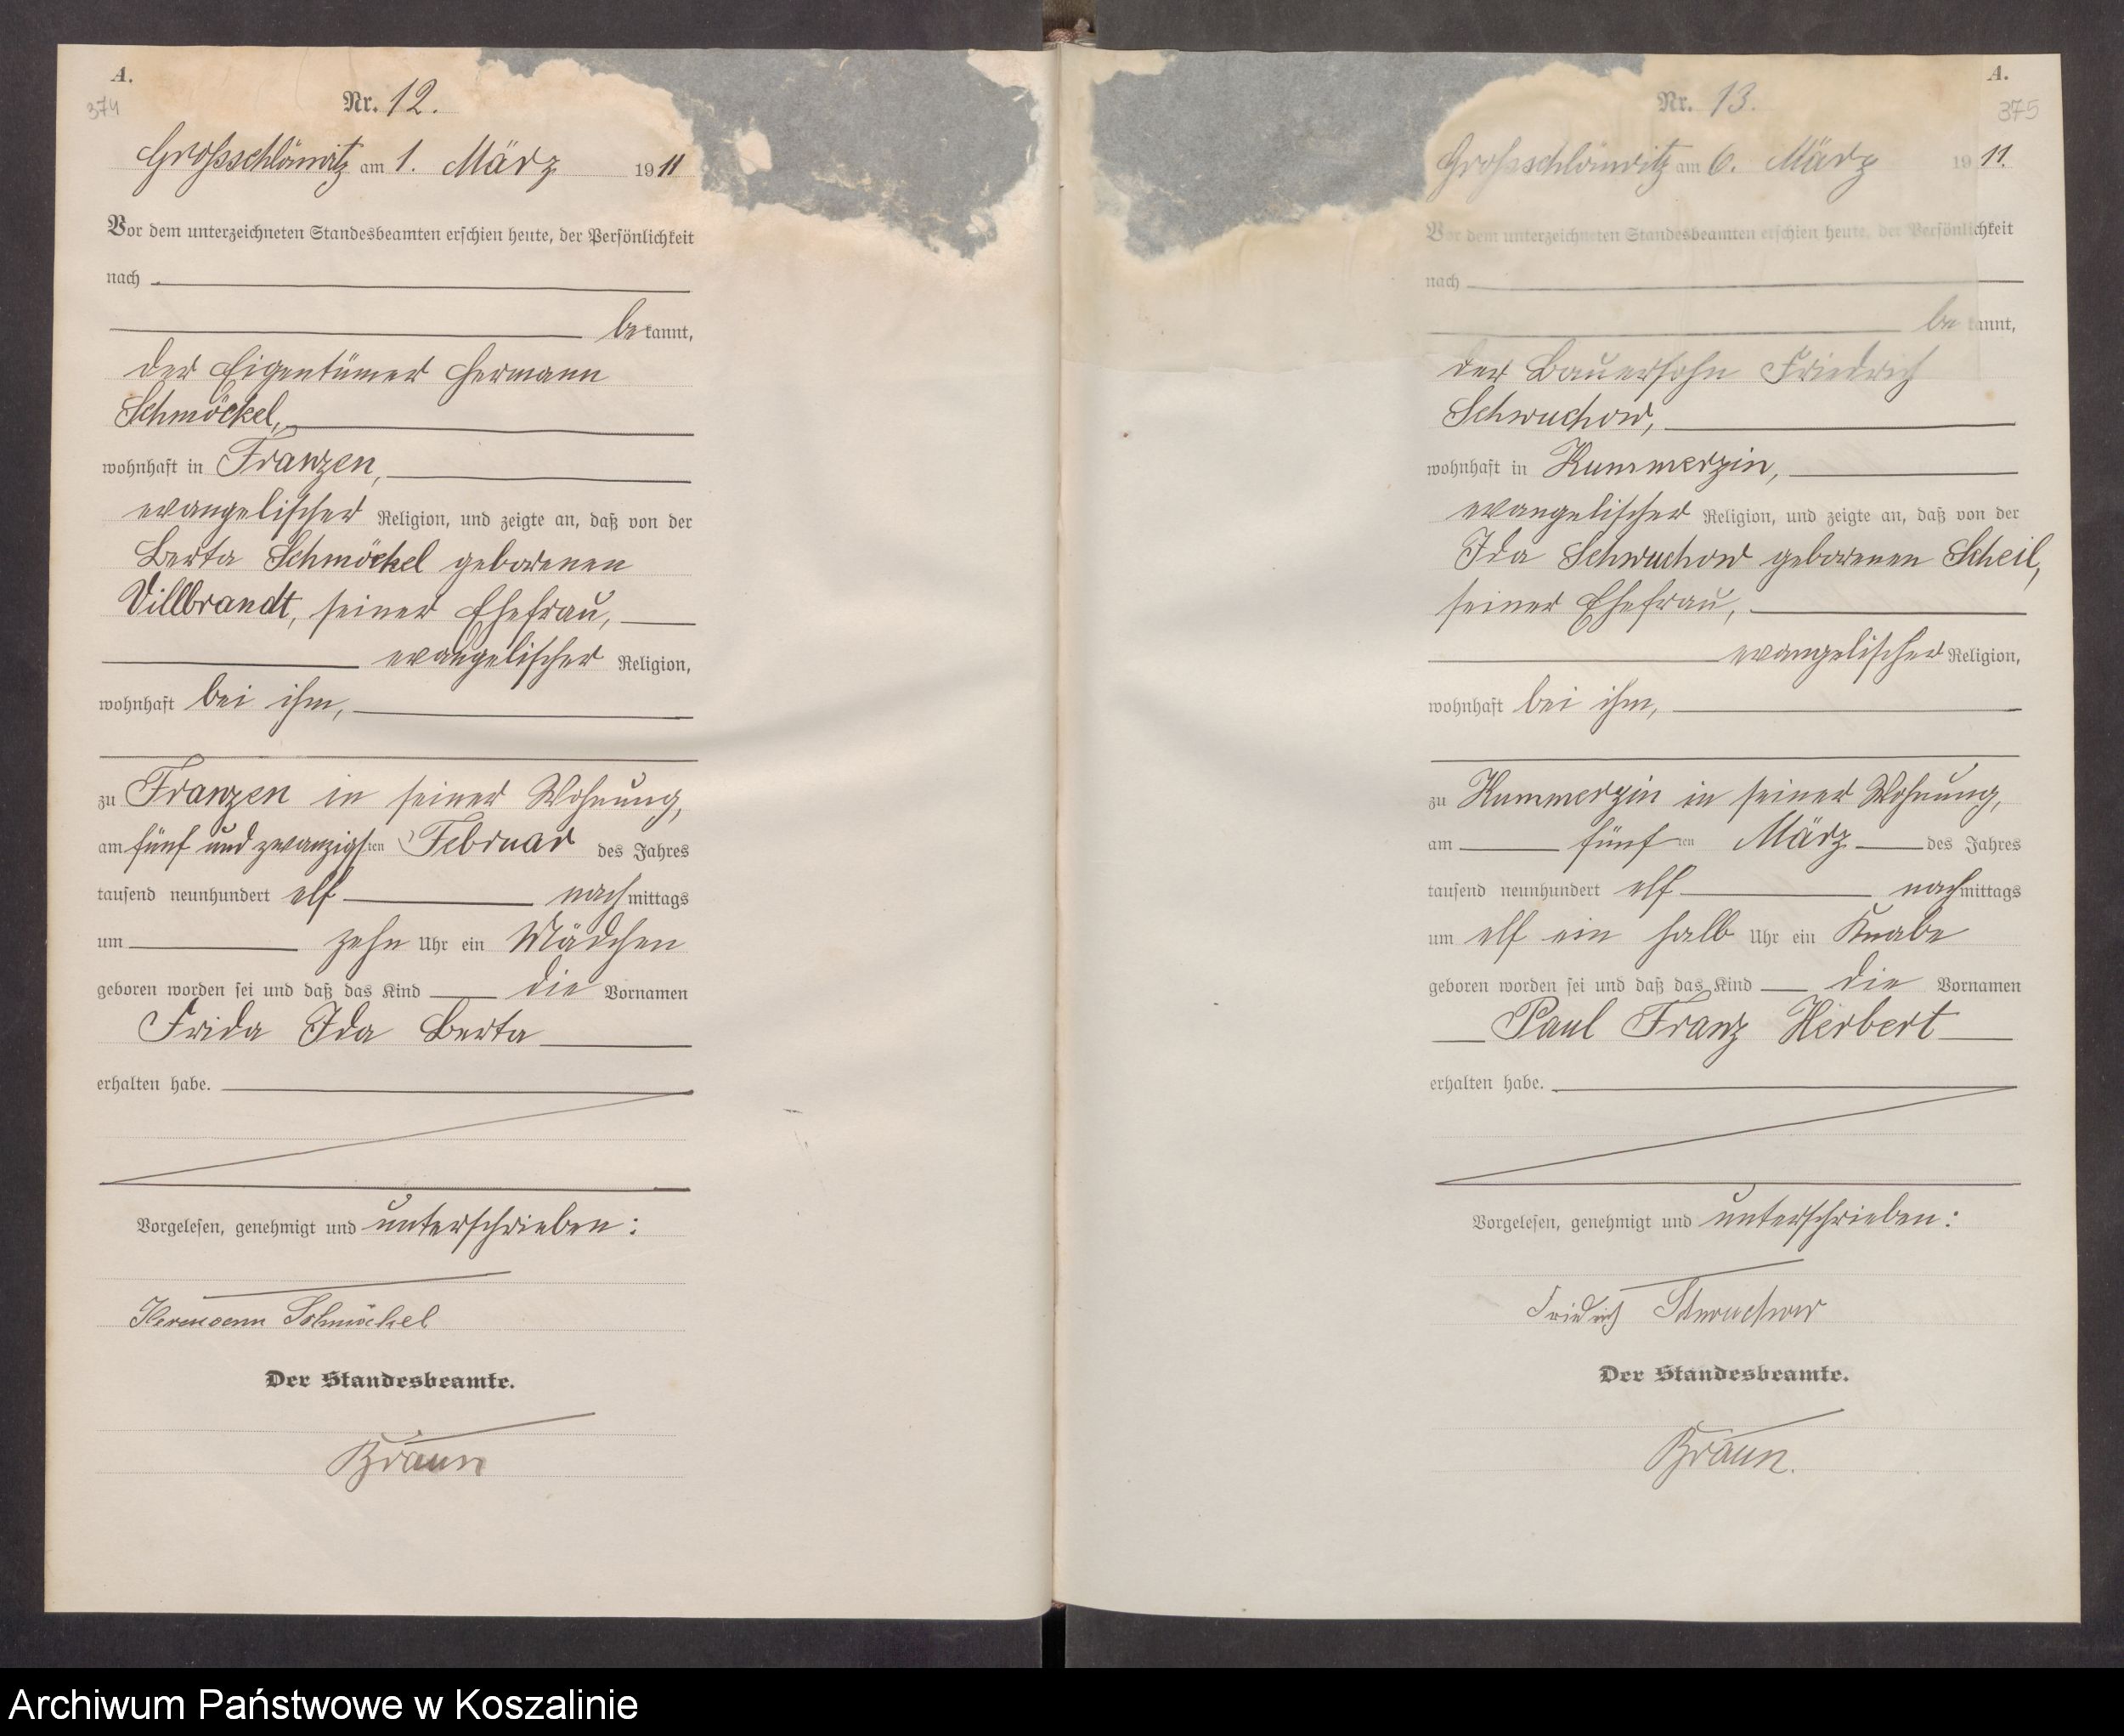 A.
374
Nr. 12.
Großschlönwitz am 1. März 1911
Vor dem unterzeichneten Standesbeamten erschien heute, der Persönlichkeit
nach
bekannt,
der Eigentümer Hermann
Schmöckel,
wohnhaft in Franzen,
evangelischer Religion, und zeigte an, daß von der
Berta Schmöckel geborenen
Villbrandt, seiner Ehefrau,
evangelischer Religion,
wohnhaft bei ihm,
zu Franzen in seiner Wohnung,
am fünf und zwanzigsten Februar des Jahres
tausend neunhundert elf nachmittags
um zehn Uhr ein Mädchen
geboren worden sei und daß das Kind die Vornamen
Frida Ida Berta
erhalten habe.
Vorgelesen, genehmigt und unterschrieben:
Hermann Schmöckel
Der Standesbeamte.
Braun
A.
375
Nr. 13.
Großschlönwitz am 6. März 1911.
Vor dem unterzeichneten Standesbeamten erschien heute, der Persönlichkeit
nach
bekannt,
der Bauersohn Friedrich
Schwuchow,
wohnhaft in Kummerzin,
evangelischer Religion, und zeigte an, daß von der
Ida Schwuchow geborenen Scheil,
seiner Ehefrau,
evangelischer Religion,
wohnhaft bei ihm,
zu Kummerzin in seiner Wohnung,
am fünften März des Jahres
tausend neunhundert elf nachmittags
um elf ein halb Uhr ein Knabe
geboren worden sei und daß das Kind die Vornamen
Paul Franz Herbert
erhalten habe.
Vorgelesen, genehmigt und unterschrieben:
Friedrich Schwuchow
Der Standesbeamte.
Braun.
Archiwum Państwowe w Koszalinie